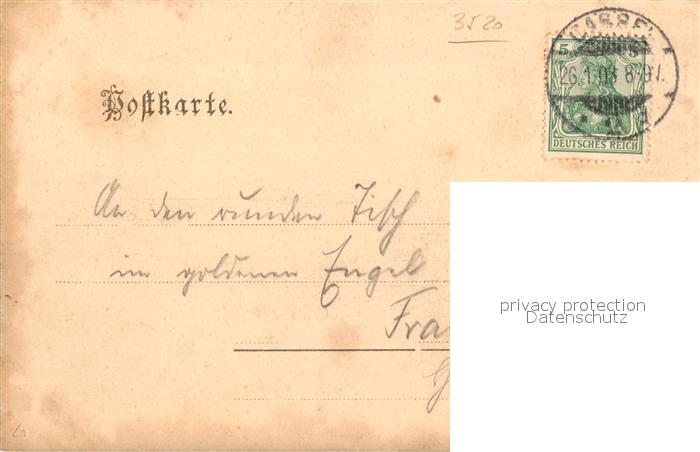 3520
CASSEL
26.1.03 8-9V.
5
DEUTSCHES REICH
Postkarte.
An den runden Tisch
im goldenen Engel
Fra
privacy protection
Datenschutz